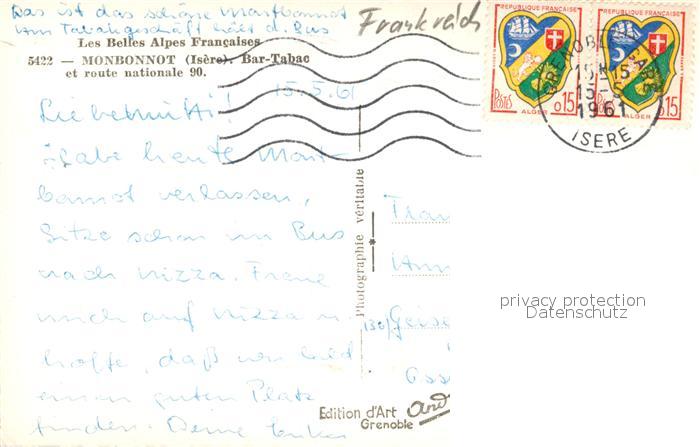 Das ist das schöne Montbonnot
vom Tabakgeschäft hält d. Bus
Frankreich
Les Belles Alpes Françaises
5422 — MONBONNOT (Isère). Bar-Tabac
et route nationale 90.
15.5.61
Liebe Mutti!
Habe heute Mont-
bonnot verlassen,
Sitze schon im Bus
nach Nizza. Freue
mich auf Nizza u.
hoffe, daß wir bald
einen guten Platz
finden. Deine
Photographie véritable
Edition d'Art
Grenoble
REPUBLIQUE FRANÇAISE
POSTES 0,15
ALGER
REPUBLIQUE FRANÇAISE
0,15
ALGER
GRENOBLE GARE
15
1961
ISERE
Frau
privacy protection
Datenschutz